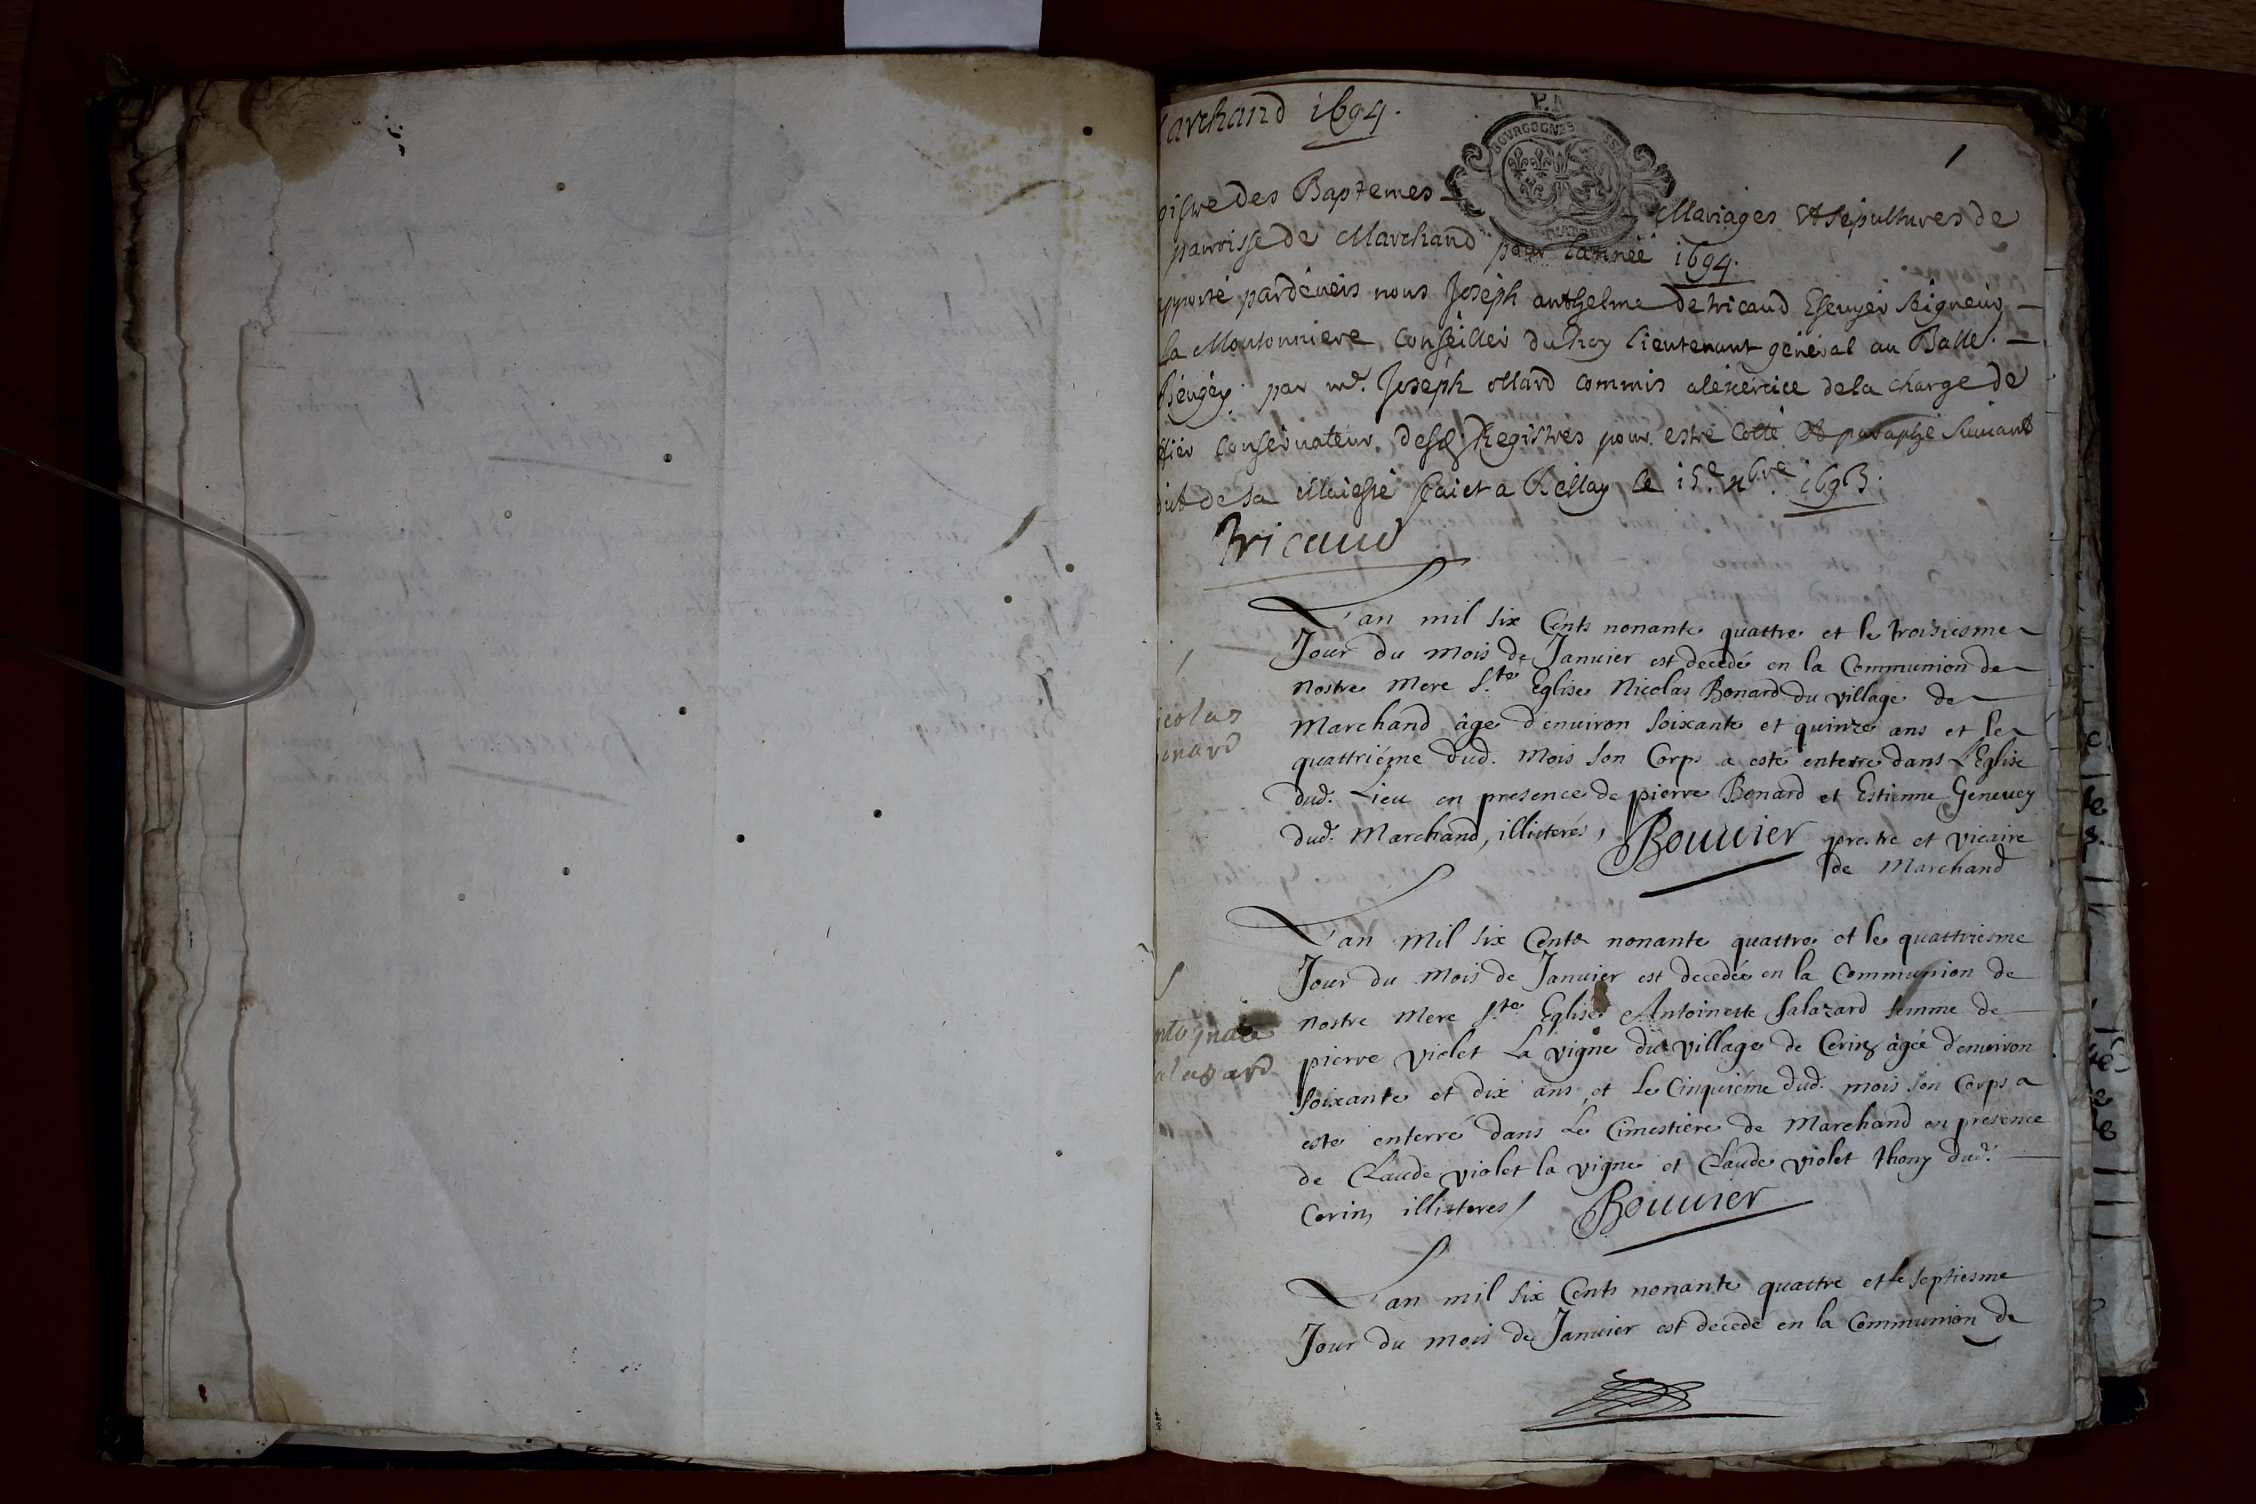 archand 1694.
1
P.A
BOURGOGNE
oistre des Baptemes Mariages Et sepultures de
parroisse de Marchand pour l'année 1694.
pporté pardeuers nous Joseph anthelme de tricaud Escuyer seigneur
la Moutonniere Conseiller du Roy lieutenant general au Balle.
Beugey. par me. Joseph ollard commis alexercice dela charge de
ffier Conseruateur desd Registres pour estre Cotté Et paraphé suiuant
dict de sa Maiesté faict a Bellay le 15e. xbre. 1693.
Tricaud
L'an mil six Cents nonante quattre et le troisiesme
Jour du mois de Januier est decedé en la Communion de
nostre mere Ste Eglise Nicolas Bonard du village de
Marchand âgé d'enuiron soixante et quinze ans et le
icolas
onard
quattriéme dud. mois son Corps a esté enterré dans L'Eglise
dud. Lieu en presence de pierre Bonard et Estienne Geneuey
dud. Marchand, illisterés, Bouuier prestre et vicaire
de Marchand
L'an mil six Cents nonante quattre et le quattriesme
Jour du mois de Januier est decedée en la Communion de
nostre mere Ste Eglise Antoinette salazard femme de
alazard
pierre violet La vigne du village de Cerin âgée d'enuiron
soixante et dix ans, et Le Cinquiéme dud. mois son Corps a
esté enterré dans Le Cimestiére de Marchand en presence
de Claude violet la vigne et Claude violet thony dud.
Cerin illisteres / Bouuier
L'an mil six Cents nonante quattre et le septiesme
Jour du mois de Januier est decedé en la Communion de